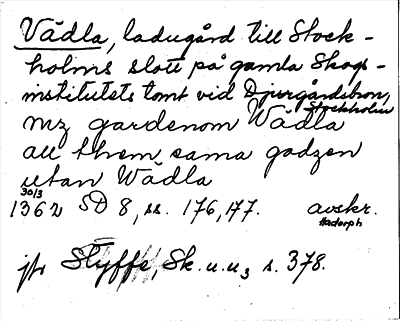 Vädla, ladugård till Stock-
holms slott på gamla Skogs-
institutets tomt vid Djurgårdsbron,
Stockholm
mz gardenom Wædla
all them sama godzen
utan Wædla
30/3
1362 SD 8, ss. 176, 177. avskr.
Hadorph
jfr Styffe, Sk. u. u, s. 378.